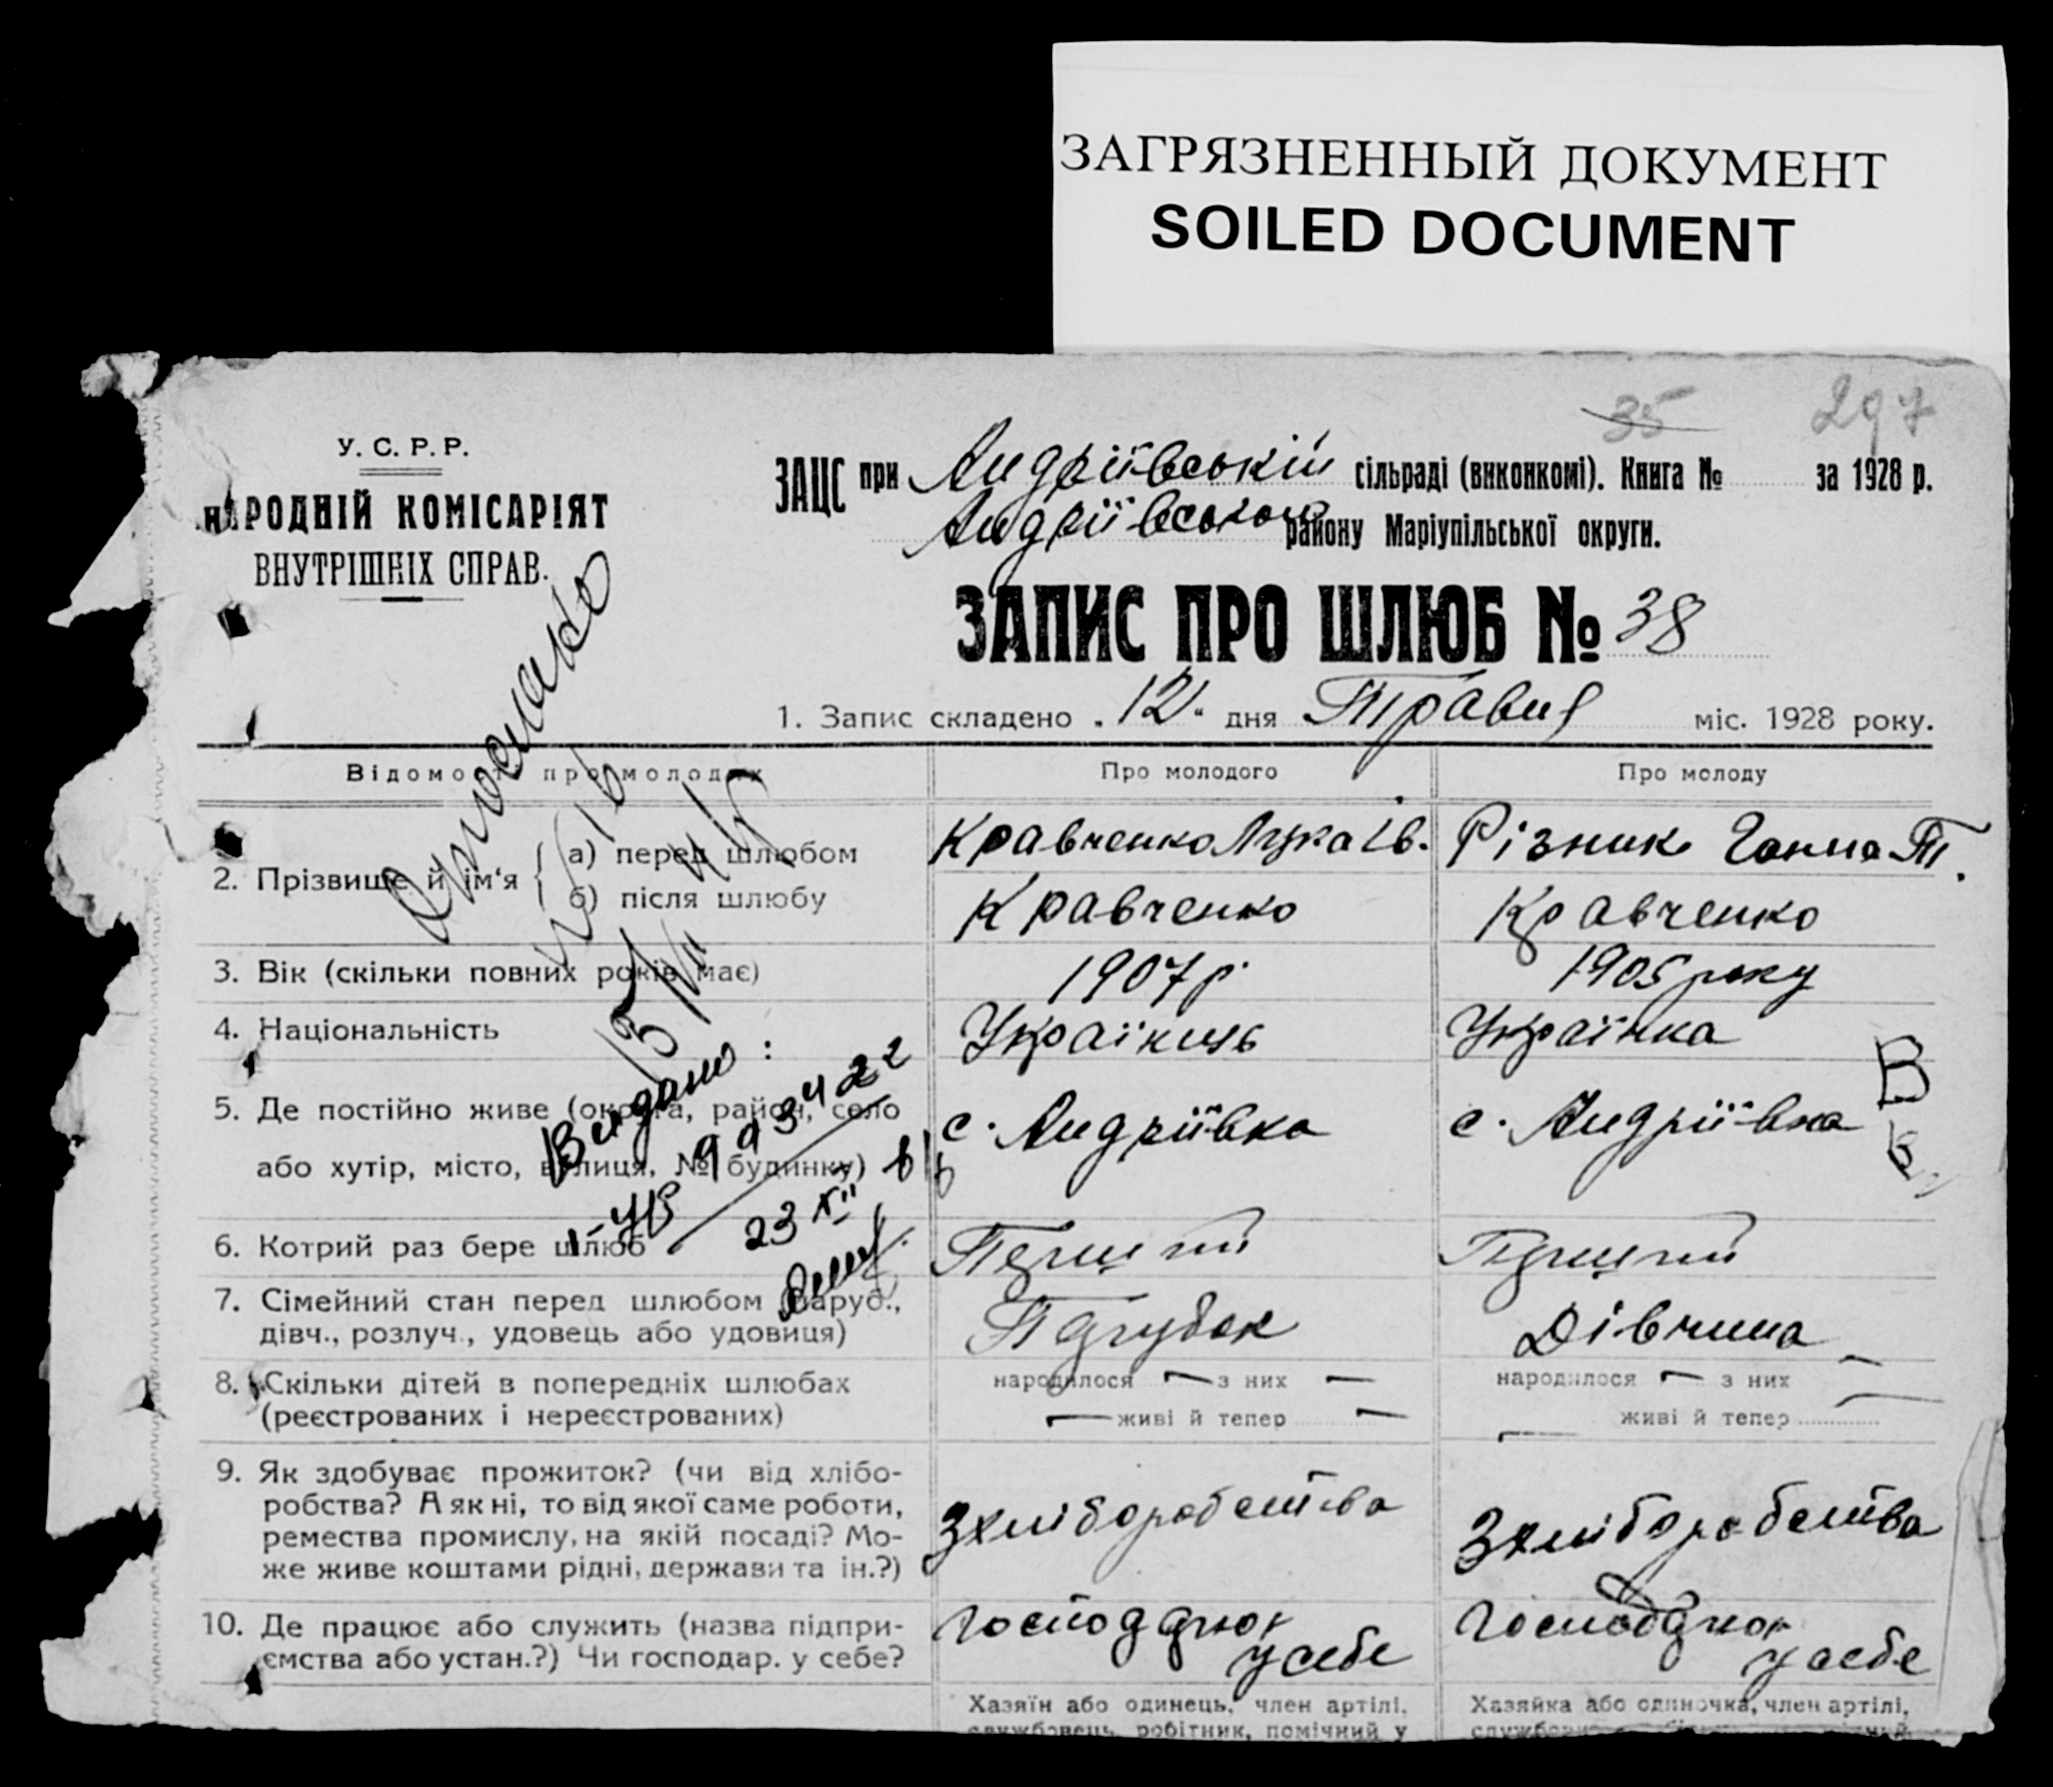 ЗАГРЯЗНЕННЫЙ ДОКУМЕНТ
SOILED DOCUMENT
35 297
У. С. Р. Р.
НАРОДНІЙ КОМІСАРІЯТ
ВНУТРІШНІХ СПРАВ.
ЗАЦС при Андріївській сільраді (виконкомі). Книга № за 1928 р.
Андріївського району Маріупільської округи.
ЗАПИС ПРО ШЛЮБ № 38
1. Запис складено „12“ дня Травня міс. 1928 року.
Відомості про молодих Про молодого Про молоду
2. Прізвище й ім‘я { а) перед шлюбом Кравченко Лука Ів. Різник Ганна Т.
б) після шлюбу Кравченко Кравченко
3. Вік (скільки повних років має) 1907 р. 1905 року
4. Національність Українець Українка
5. Де постійно живе (округа, район, село с. Андріївка с. Андріївка
або хутір, місто, вулиця, № будинку)
6. Котрий раз бере шлюб Перший Перший
7. Сімейний стан перед шлюбом (паруб., Парубок Дівчина
дівч., розлуч., удовець або удовиця)
8. Скільки дітей в попередніх шлюбах народилося — з них — народилося — з них —
(реєстрованих і нереєстрованих) — живі й тепер — — живі й тепер —
9. Як здобуває прожиток? (чи від хлібо-
робства? А як ні, то від якої саме роботи, З хліборобства З хліборобства
ремества промислу, на якій посаді? Мо-
же живе коштами рідні, держави та ін.?)
10. Де працює або служить (назва підпри-
ємства або устан.?) Чи господар. у себе? у себе у себе
Хазяїн або одинець, член артілі, Хазяйка або одиночка, член артілі,
службовець, робітник, помічний у
Видано:
І-УВ
23 XII